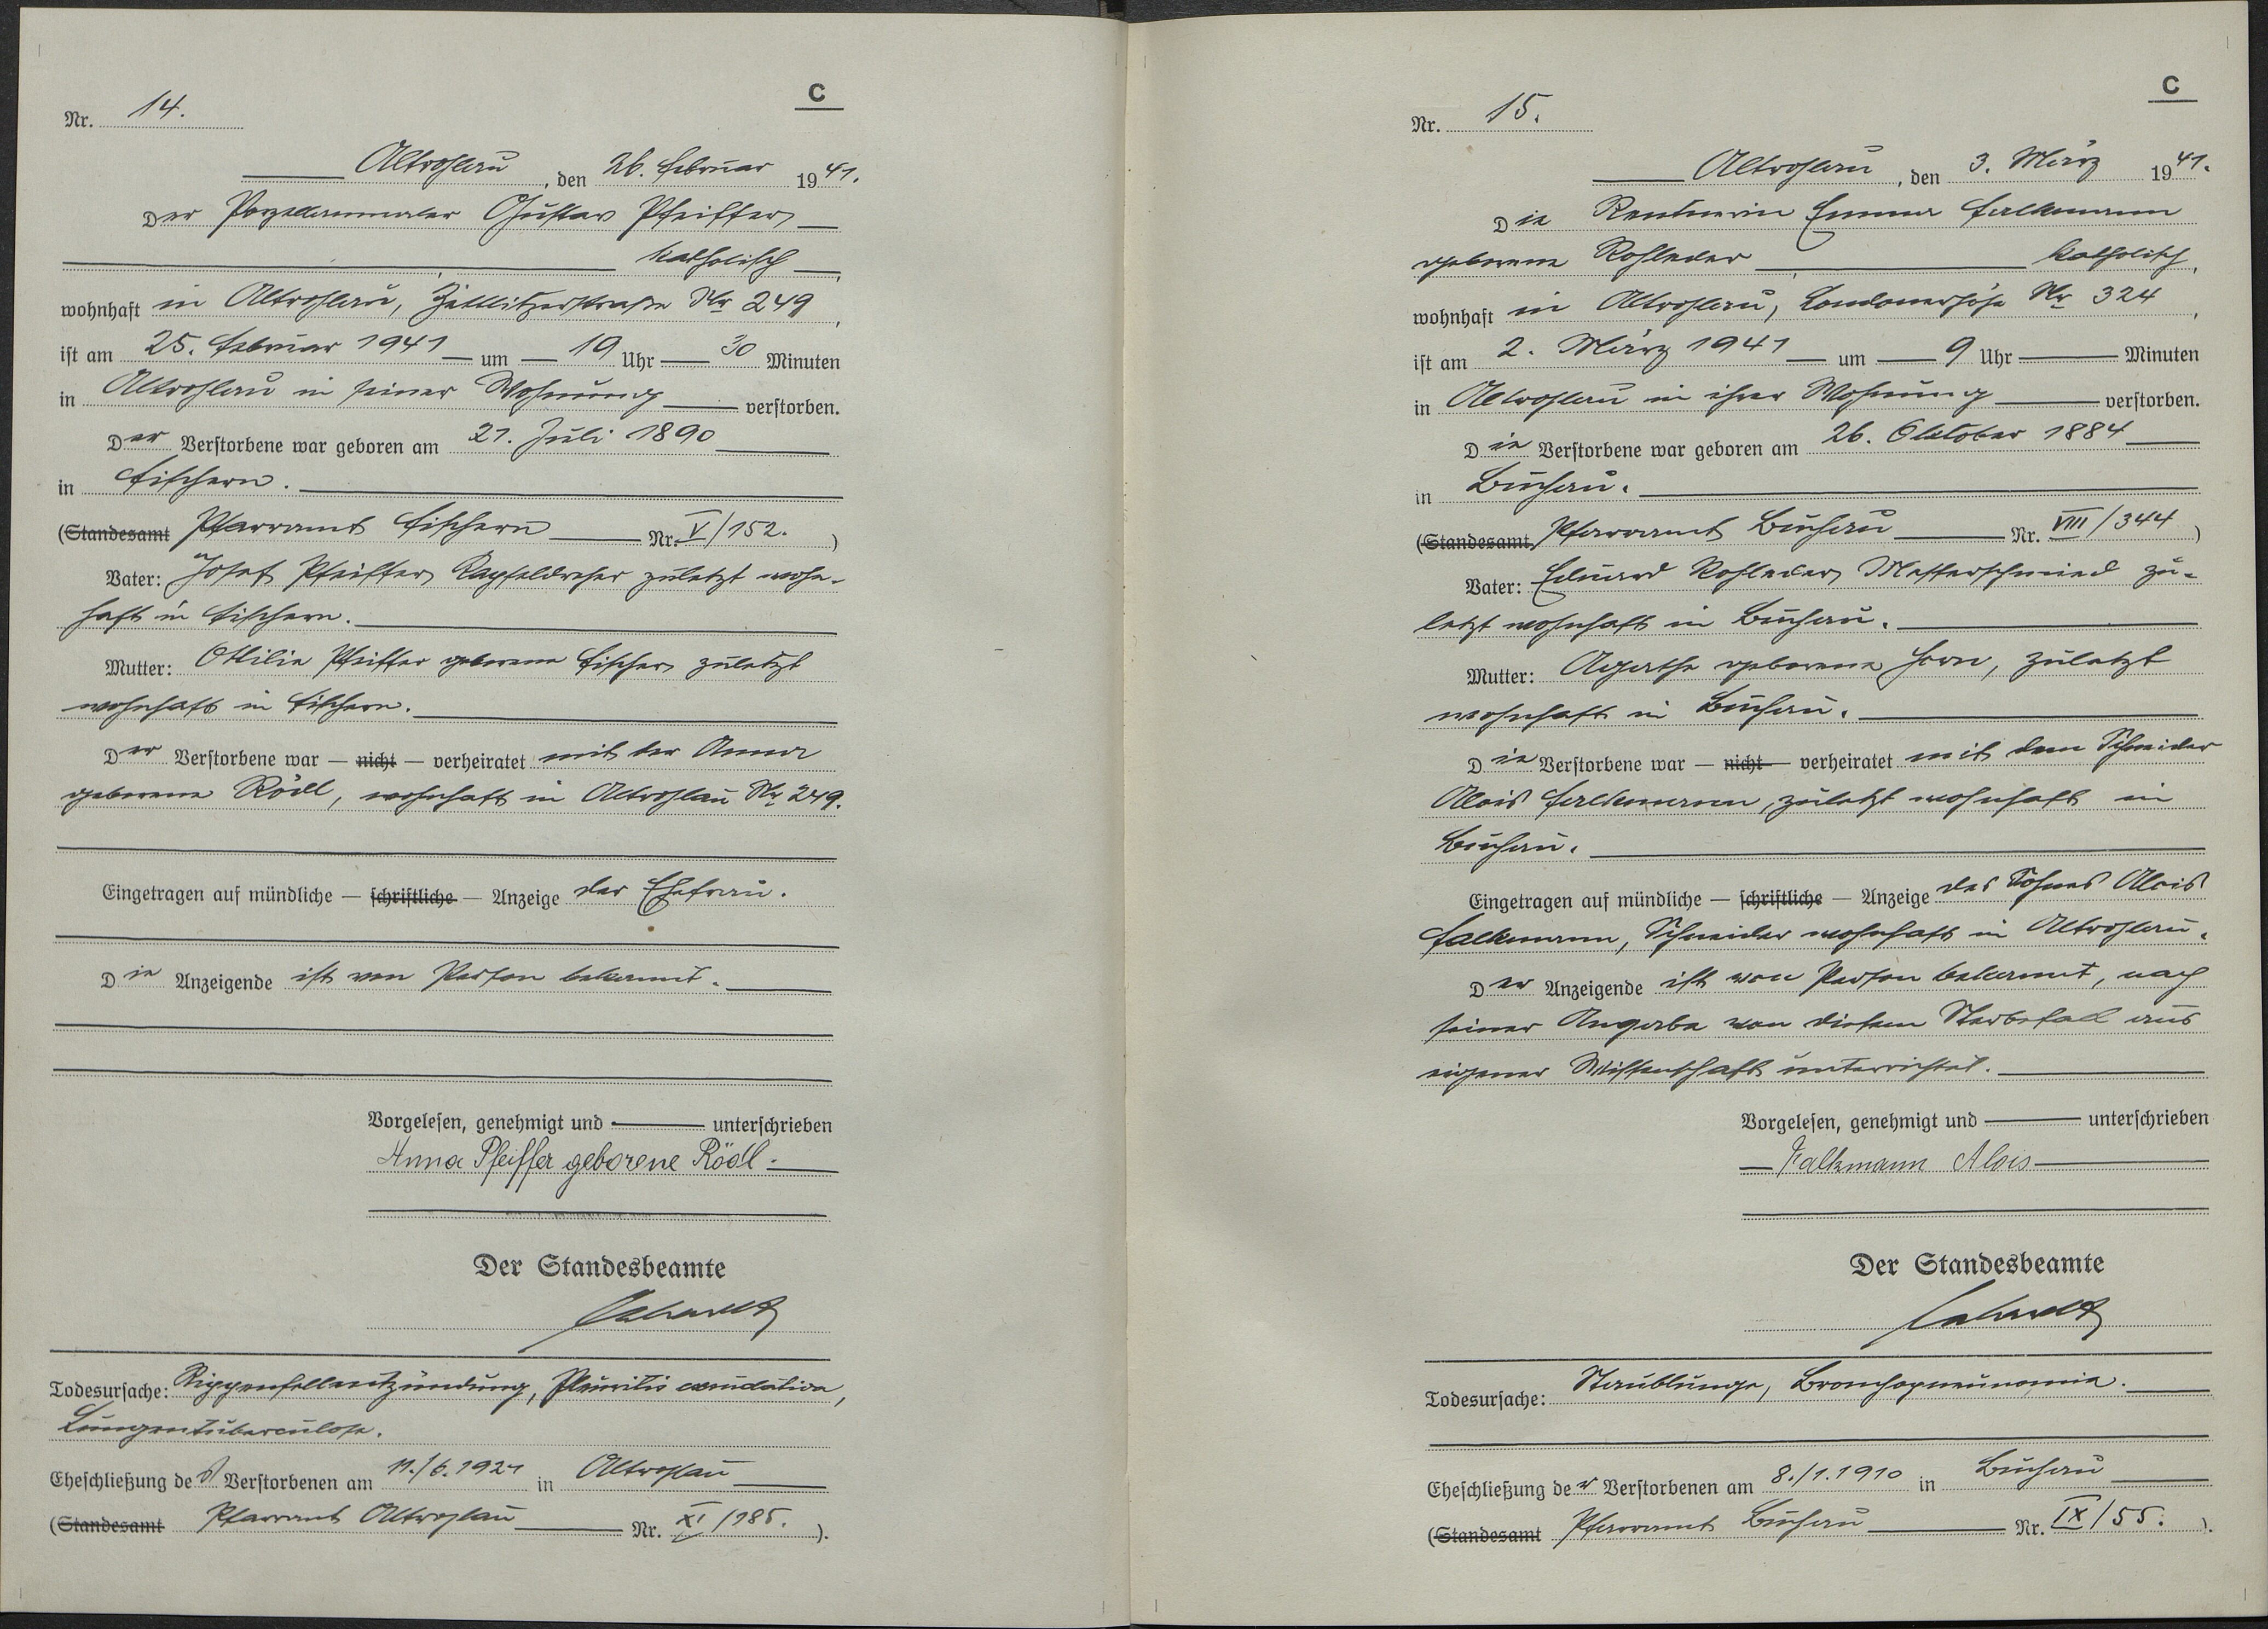 C
Nr. 14.
Altrohlau, den 26. Februar 1941.
Der Porzellanmaler Gustav Pfeiffer,
katholisch,
wohnhaft in Altrohlau, Zettlitzerstraße Nr 249,
ist am 25. Februar 1941 um 19 Uhr 30 Minuten
in Altrohlau in seiner Wohnung verstorben.
Der Verstorbene war geboren am 21. Juli 1890
in Fischern.
(Standesamt Pfarramt Fischern Nr. V/152.)
Vater: Josef Pfeiffer, Kapseldreher zuletzt wohn-
haft in Fischern.
Mutter: Ottilie Pfeiffer geborene Fischer, zuletzt
wohnhaft in Fischern.
Der Verstorbene war — nicht — verheiratet mit der Anna
geborene Rödl, wohnhaft in Altrohlau Nr 249.
Eingetragen auf mündliche — schriftliche — Anzeige der Ehefrau.
Die Anzeigende ist von Person bekannt.
Vorgelesen, genehmigt und unterschrieben
Anna Pfeiffer geborene Rödl.
Der Standesbeamte
Todesursache: Rippenfellentzündung, Pleuritis exsudativa,
Lungentuberculose.
Eheschließung des Verstorbenen am 11./6.1921 in Altrohlau
(Standesamt Pfarramt Altrohlau Nr. XI/185.).
C
Nr. 15.
Altrohlau, den 3. März 1941.
Die Rentnerin Emma Falkmann
geborene Rohleder katholisch,
wohnhaft in Altrohlau, Londonerhöhe Nr 324,
ist am 2. März 1941 um 9 Uhr Minuten
in Altrohlau in ihrer Wohnung verstorben.
Die Verstorbene war geboren am 26. Oktober 1884
in Buchau.
(Standesamt Pfarramt Buchau Nr. VIII/344)
Vater: Eduard Rohleder, Messerschmied zu-
letzt wohnhaft in Buchau.
Mutter: Agathe geborene Horn, zuletzt
wohnhaft in Buchau.
Die Verstorbene war — nicht — verheiratet mit dem Schneider
Alois Falkmann, zuletzt wohnhaft in
Buchau.
Eingetragen auf mündliche — schriftliche — Anzeige des Sohnes Alois
Falkmann, Schneider wohnhaft in Altrohlau.
Der Anzeigende ist von Person bekannt, nach
seiner Angabe von diesem Sterbefall aus
eigener Wissenschaft unterrichtet.
Vorgelesen, genehmigt und unterschrieben
Falkmann Alois
Der Standesbeamte
Todesursache: Staublunge, Bronchopneumomia.
Eheschließung der Verstorbenen am 8./1.1910 in Buchau
(Standesamt Pfarramt Buchau Nr. IX/55.).